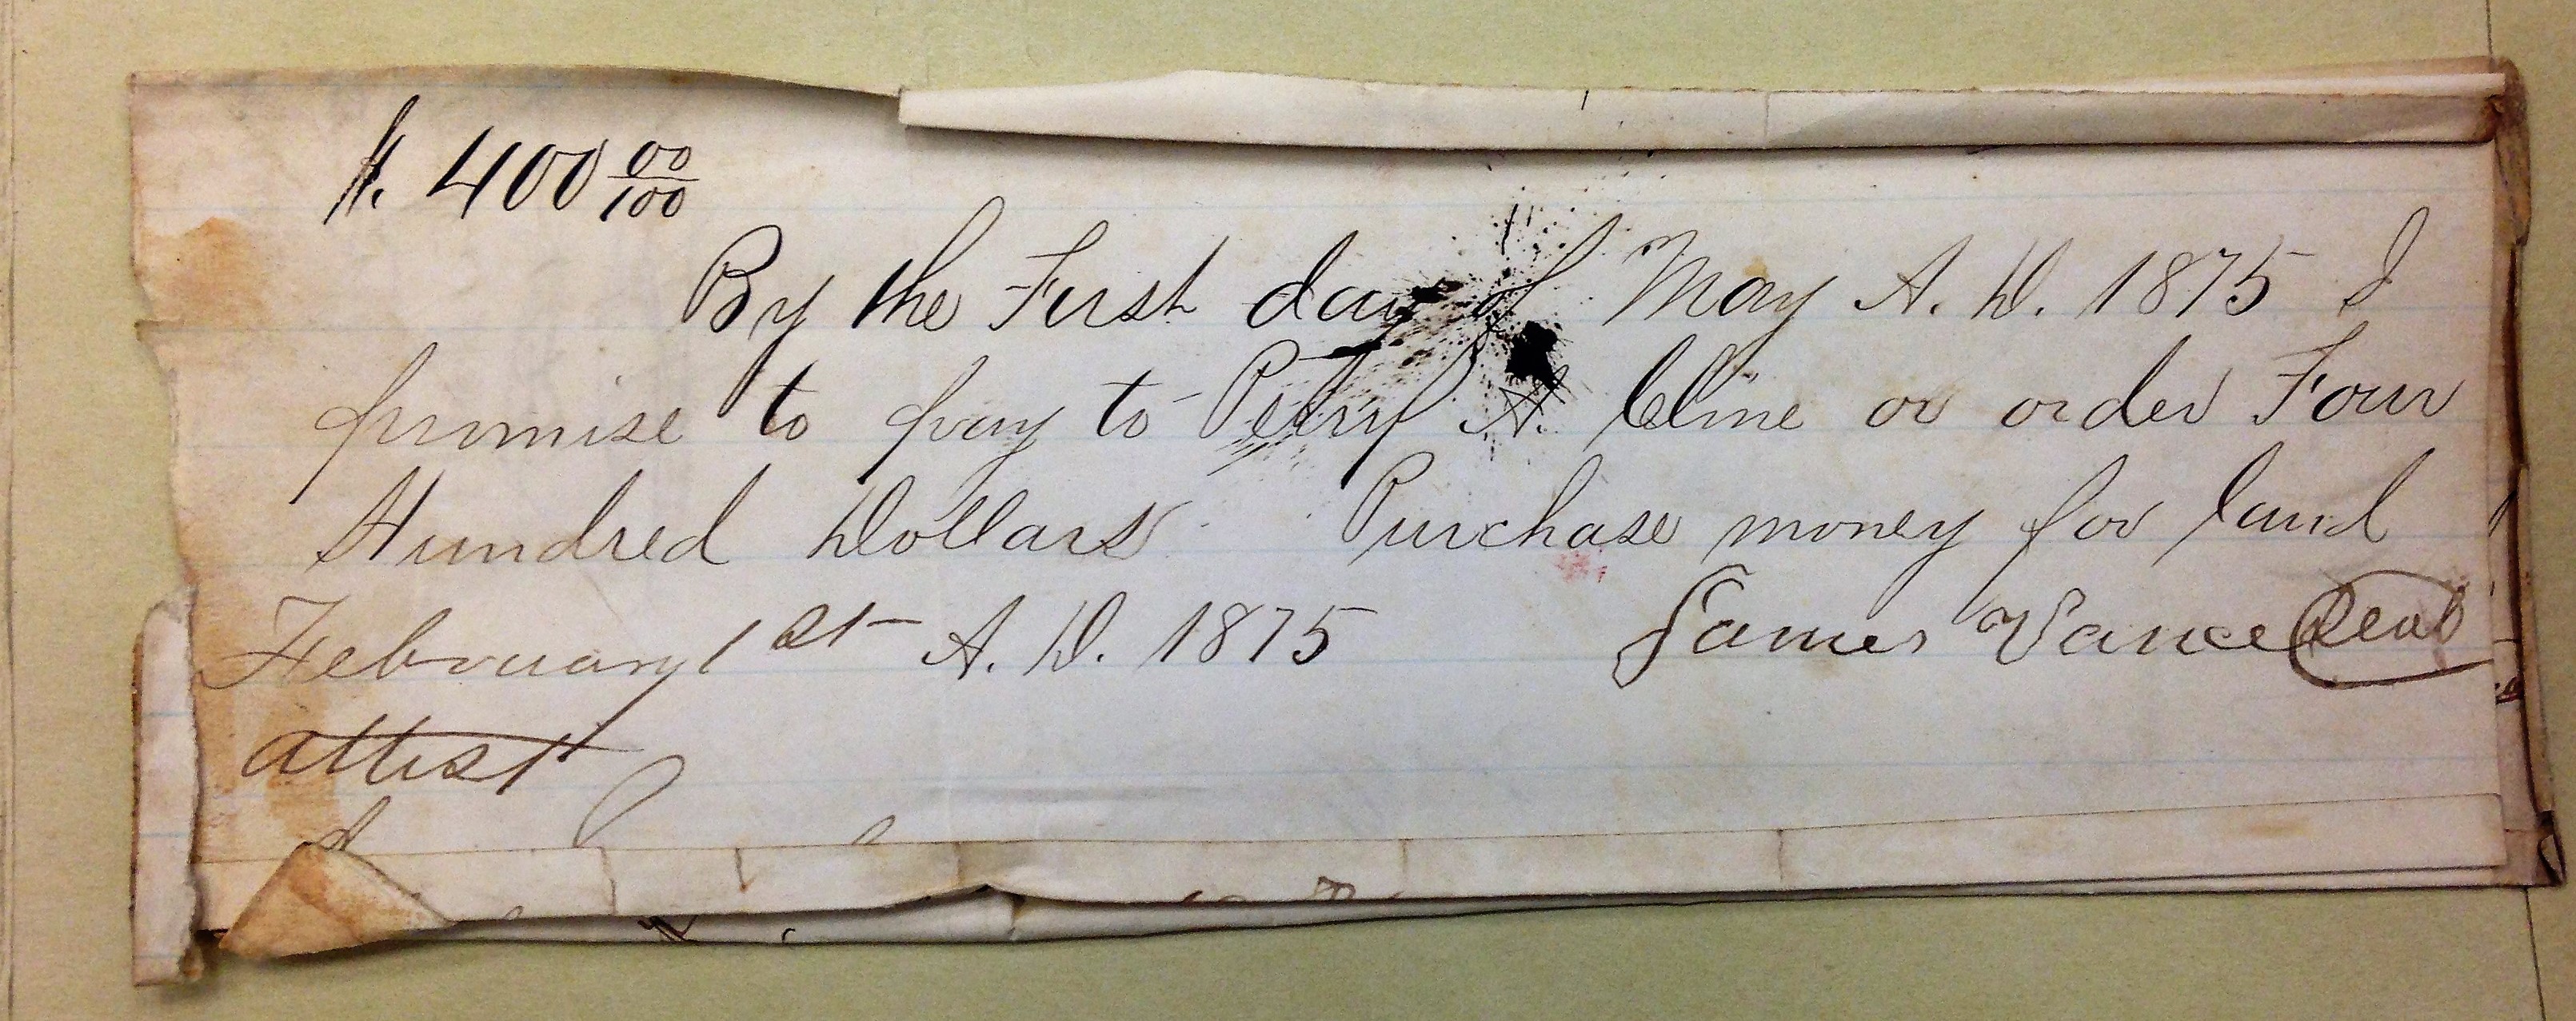 $. 400 00/100
By the First day of May A. D. 1875 I
promise to pay to Perry A. Cline or order Four
Hundred Dollars Purchase money for land
February 1st A. D. 1875 James Vance Seal
attest